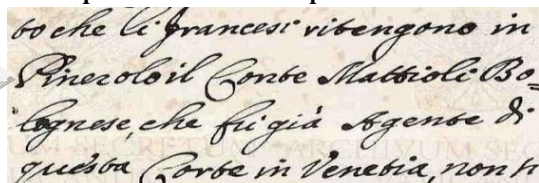 to che li francesi ritengono in
Pinerolo il Conte Mattioli Bo=
lognese, che fu già Agente di
questa Corte in Venetia, non